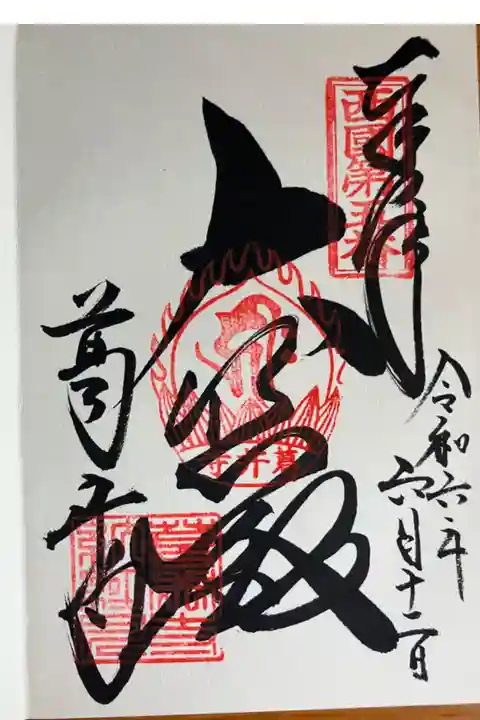 奉拝
西國第五番
令和六年
六月十二日
大悲殿
葛井寺
葛井寺